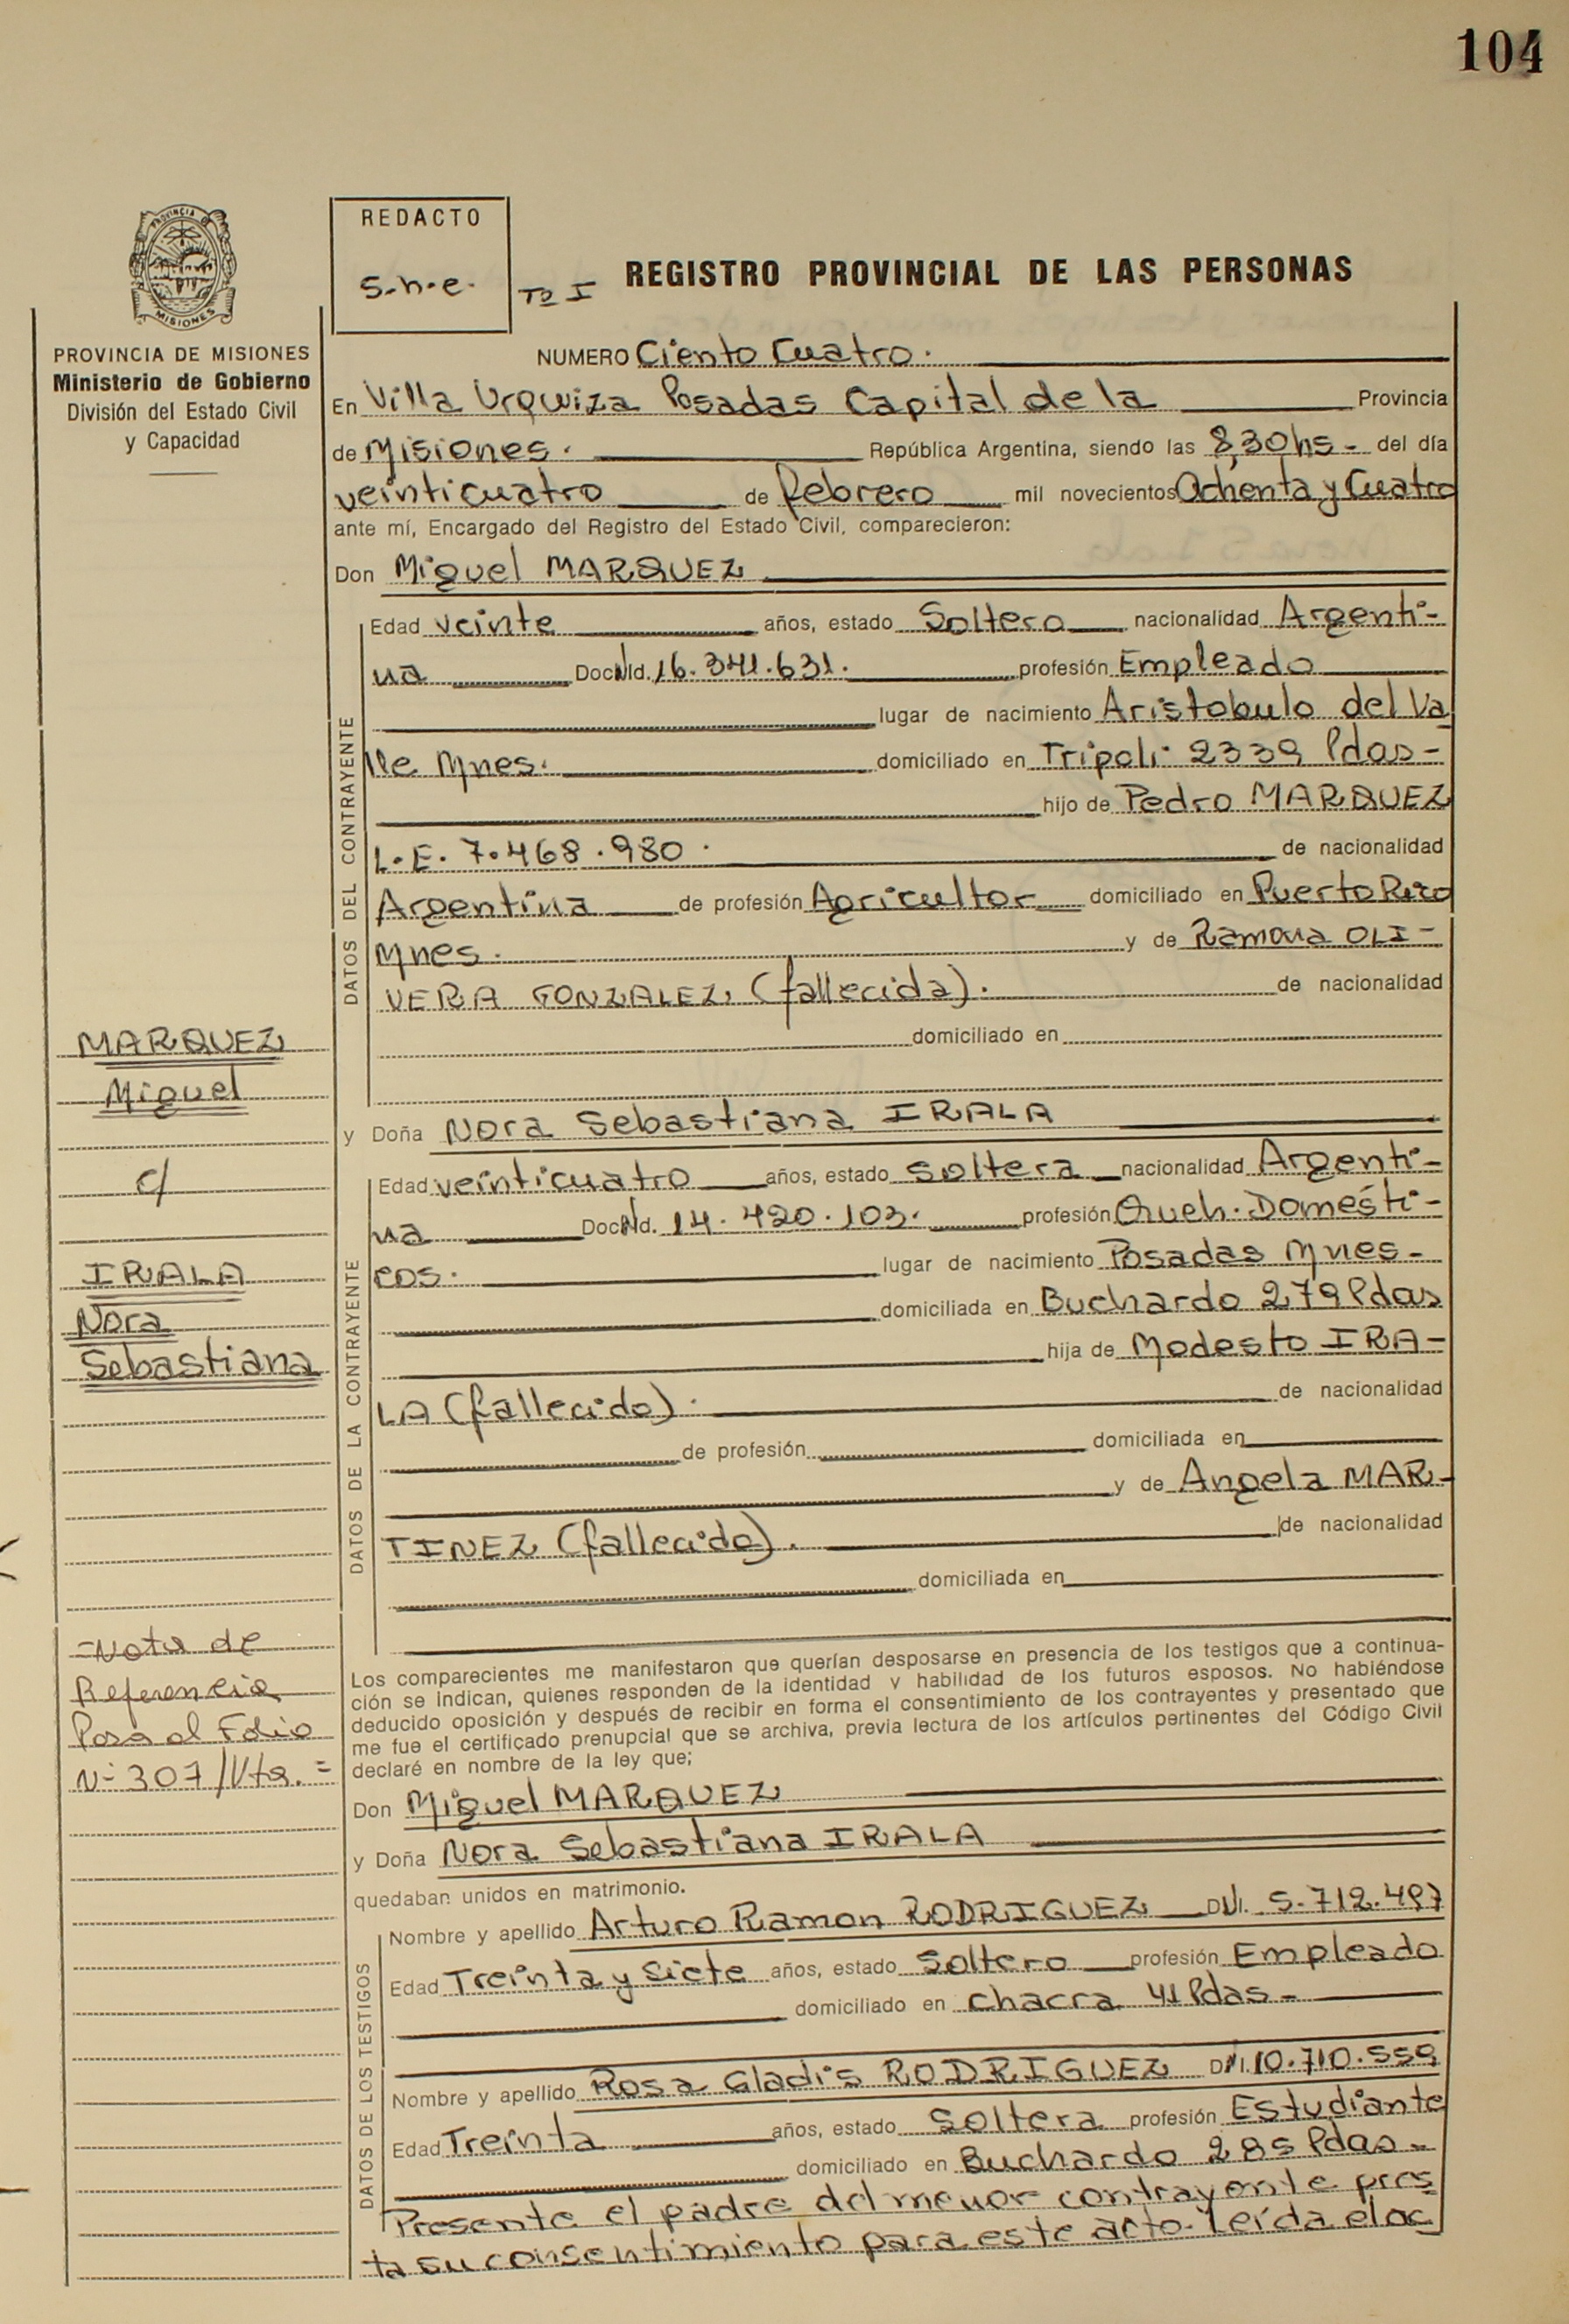 104
PROVINCIA DE
MISIONES
PROVINCIA DE MISIONES
Ministerio de Gobierno
División del Estado Civil
y Capacidad
REDACTO
s.h.e.
Tº I
REGISTRO PROVINCIAL DE LAS PERSONAS
NUMERO Ciento Cuatro.
En Villa Urquiza Posadas Capital de la Provincia
de Misiones. República Argentina, siendo las 8,30hs - del día
veinticuatro de febrero mil novecientos Ochenta y Cuatro
ante mí, Encargado del Registro del Estado Civil, comparecieron:
Don Miguel MARQUEZ
DATOS DEL CONTRAYENTE
Edad veinte años, estado Soltero nacionalidad Argenti-
na Doc. Nd. 16.341.631. profesión Empleado
lugar de nacimiento Aristobulo del Va
lle Mnes. domiciliado en Tripoli 2339 Pdas-
hijo de Pedro MARQUEZ
L.E. 7.468.980. de nacionalidad
Argentina de profesión Agricultor domiciliado en Puerto Rico
Mnes. y de Ramona OLI-
VERA GONZALEZ (fallecida). de nacionalidad
domiciliado en
MARQUEZ
Miguel
c/
IRALA
Nora
Sebastiana
y Doña Nora Sebastiana IRALA
DATOS DE LA CONTRAYENTE
Edad veinticuatro años, estado soltera nacionalidad Argenti-
na Doc. Nd. 14.420.103. profesión Queh. Domésti-
cos. lugar de nacimiento Posadas Mnes-
domiciliada en Buchardo 279 Pdas
hija de Modesto IRA-
LA (fallecido). de nacionalidad
de profesión domiciliada en
y de Angela MAR-
TINEZ (fallecido). de nacionalidad
domiciliada en
=Nota de
Referencia
Pasa al Folio
Nº 307/Vta. =
Los comparecientes me manifestaron que querían desposarse en presencia de los testigos que a continua-
ción se indican, quienes responden de la identidad y habilidad de los futuros esposos. No habiéndose
deducido oposición y después de recibir en forma el consentimiento de los contrayentes y presentado que
me fue el certificado prenupcial que se archiva, previa lectura de los artículos pertinentes del Código Civil
declaré en nombre de la ley que;
Don Miguel MARQUEZ
y Doña Nora Sebastiana IRALA
quedaban unidos en matrimonio.
DATOS DE LOS TESTIGOS
Nombre y apellido Arturo Ramon RODRIGUEZ DNI. 5.712.497
Edad Treinta y Siete años, estado Soltero profesión Empleado
domiciliado en chacra 41 Pdas-
Nombre y apellido Rosa Gladis RODRIGUEZ DNI. 10.710.559
Edad Treinta años, estado Soltera profesión Estudiante
domiciliado en Buchardo 285 Pdas-
Presente el padre del menor contrayente pres
ta su consentimiento para este acto. Leída el ac